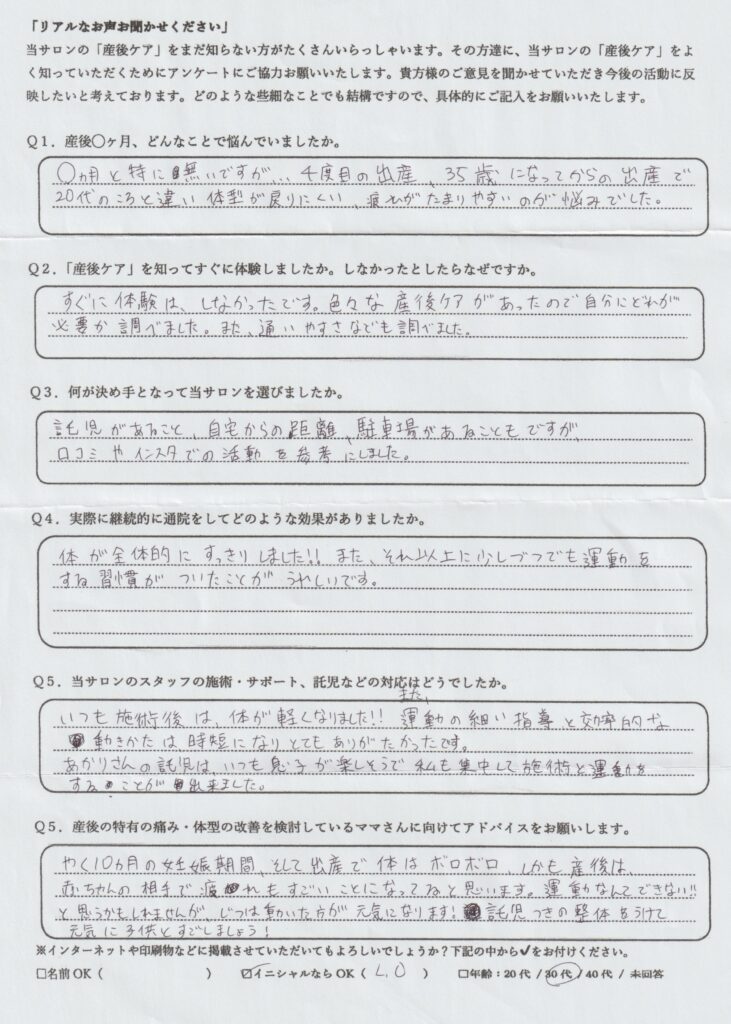 「リアルなお声お聞かせください」
当サロンの「産後ケア」をまだ知らない方がたくさんいらっしゃいます。その方達に、当サロンの「産後ケア」をよ
く知っていただくためにアンケートにご協力お願いいたします。貴方様のご意見を聞かせていただき今後の活動に反
映したいと考えております。どのような些細なことでも結構ですので、具体的にご記入をお願いいたします。
Q1．産後〇ヶ月、どんなことで悩んでいましたか。
〇ヵ月と特に無いですが… 4度目の出産、35歳になってからの出産で
20代のころと違い体型が戻りにくい、疲れがたまりやすいのが悩みでした。
Q2．「産後ケア」を知ってすぐに体験しましたか。しなかったとしたらなぜですか。
すぐに体験は、しなかったです。色々な産後ケアがあったので自分にどれが
必要か調べました。また、通いやすさなでも調べました。
Q3．何が決め手となって当サロンを選びましたか。
託児があること、自宅からの距離、駐車場があることもですが、
口コミやインスタでの活動を参考にしました。
Q4．実際に継続的に通院をしてどのような効果がありましたか。
体が全体的にすっきりしました!! また、それ以上に少しづつでも運動を
する習慣がついたことがうれしいです。
Q5．当サロンのスタッフの施術・サポート、託児などの対応はどうでしたか。
また、
いつも施術後は、体が軽くなりました!! 運動の細い指導と効率的な
動きかたは時短になりとてもありがたかったです。
あかりさんの託児は、いつも息子が楽しそうで私も集中して施術と運動を
することが出来ました。
Q5．産後の特有の痛み・体型の改善を検討しているママさんに向けてアドバイスをお願いします。
やく10ヵ月の妊娠期間、そして出産で体はボロボロ、しかも産後は、
赤ちゃんの相手で疲れもすごいことになってると思います。運動なんてできない!!
と思うかもしれませんが、じつは動いた方が元気になります! 託児つきの整体をうけて
元気に子供とすごしましょう!
※インターネットや印刷物などに掲載させていただいてもよろしいでしょうか？下記の中から✔をお付けください。
□名前OK（　　　　　　　） ☑イニシャルならOK（ L.O ） □年齢：20代 / 30代 / 40代 / 未回答